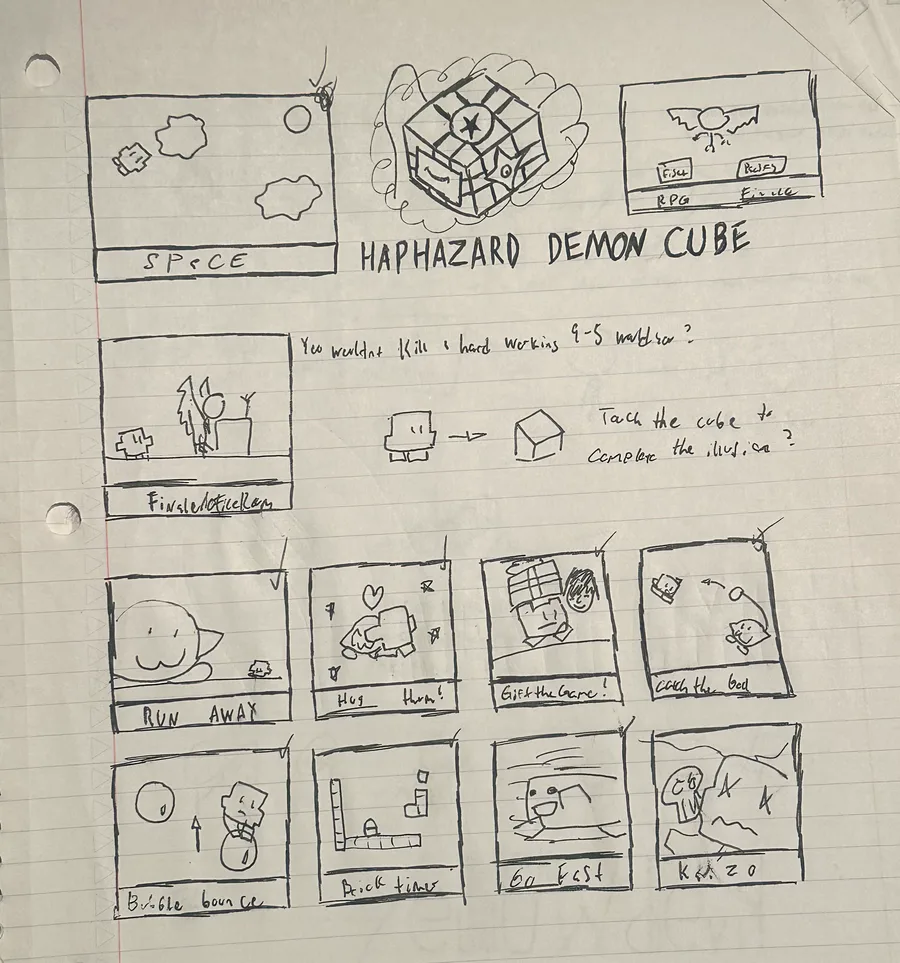 SPaCE
HAPHAZARD DEMON CUBE
Fight
RPG Finale
You wouldnt kill a hard working 9-5 would you?
Touch the cube to
complete the illusion?
Finale Office Room
RUN AWAY
Hug them!
Gift the Game!
Catch the God
Bubble bounce
Brick time
Go East